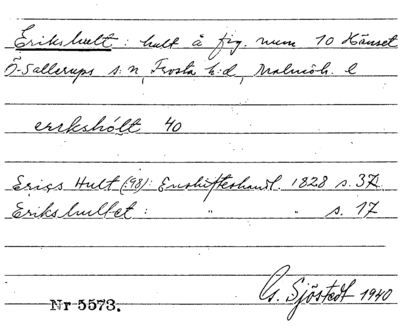 Erikshult: hult å fig. num 10 Hänset
Ö-Sallerups s:n, Frosta h:d, Malmöh. l
erikshólt 40
Erics Hult (:98): Enskifteshandl. 1828 s. 37
Erikshultet: " " s. 17
G. Sjöstedt 1940
Nr 5573.